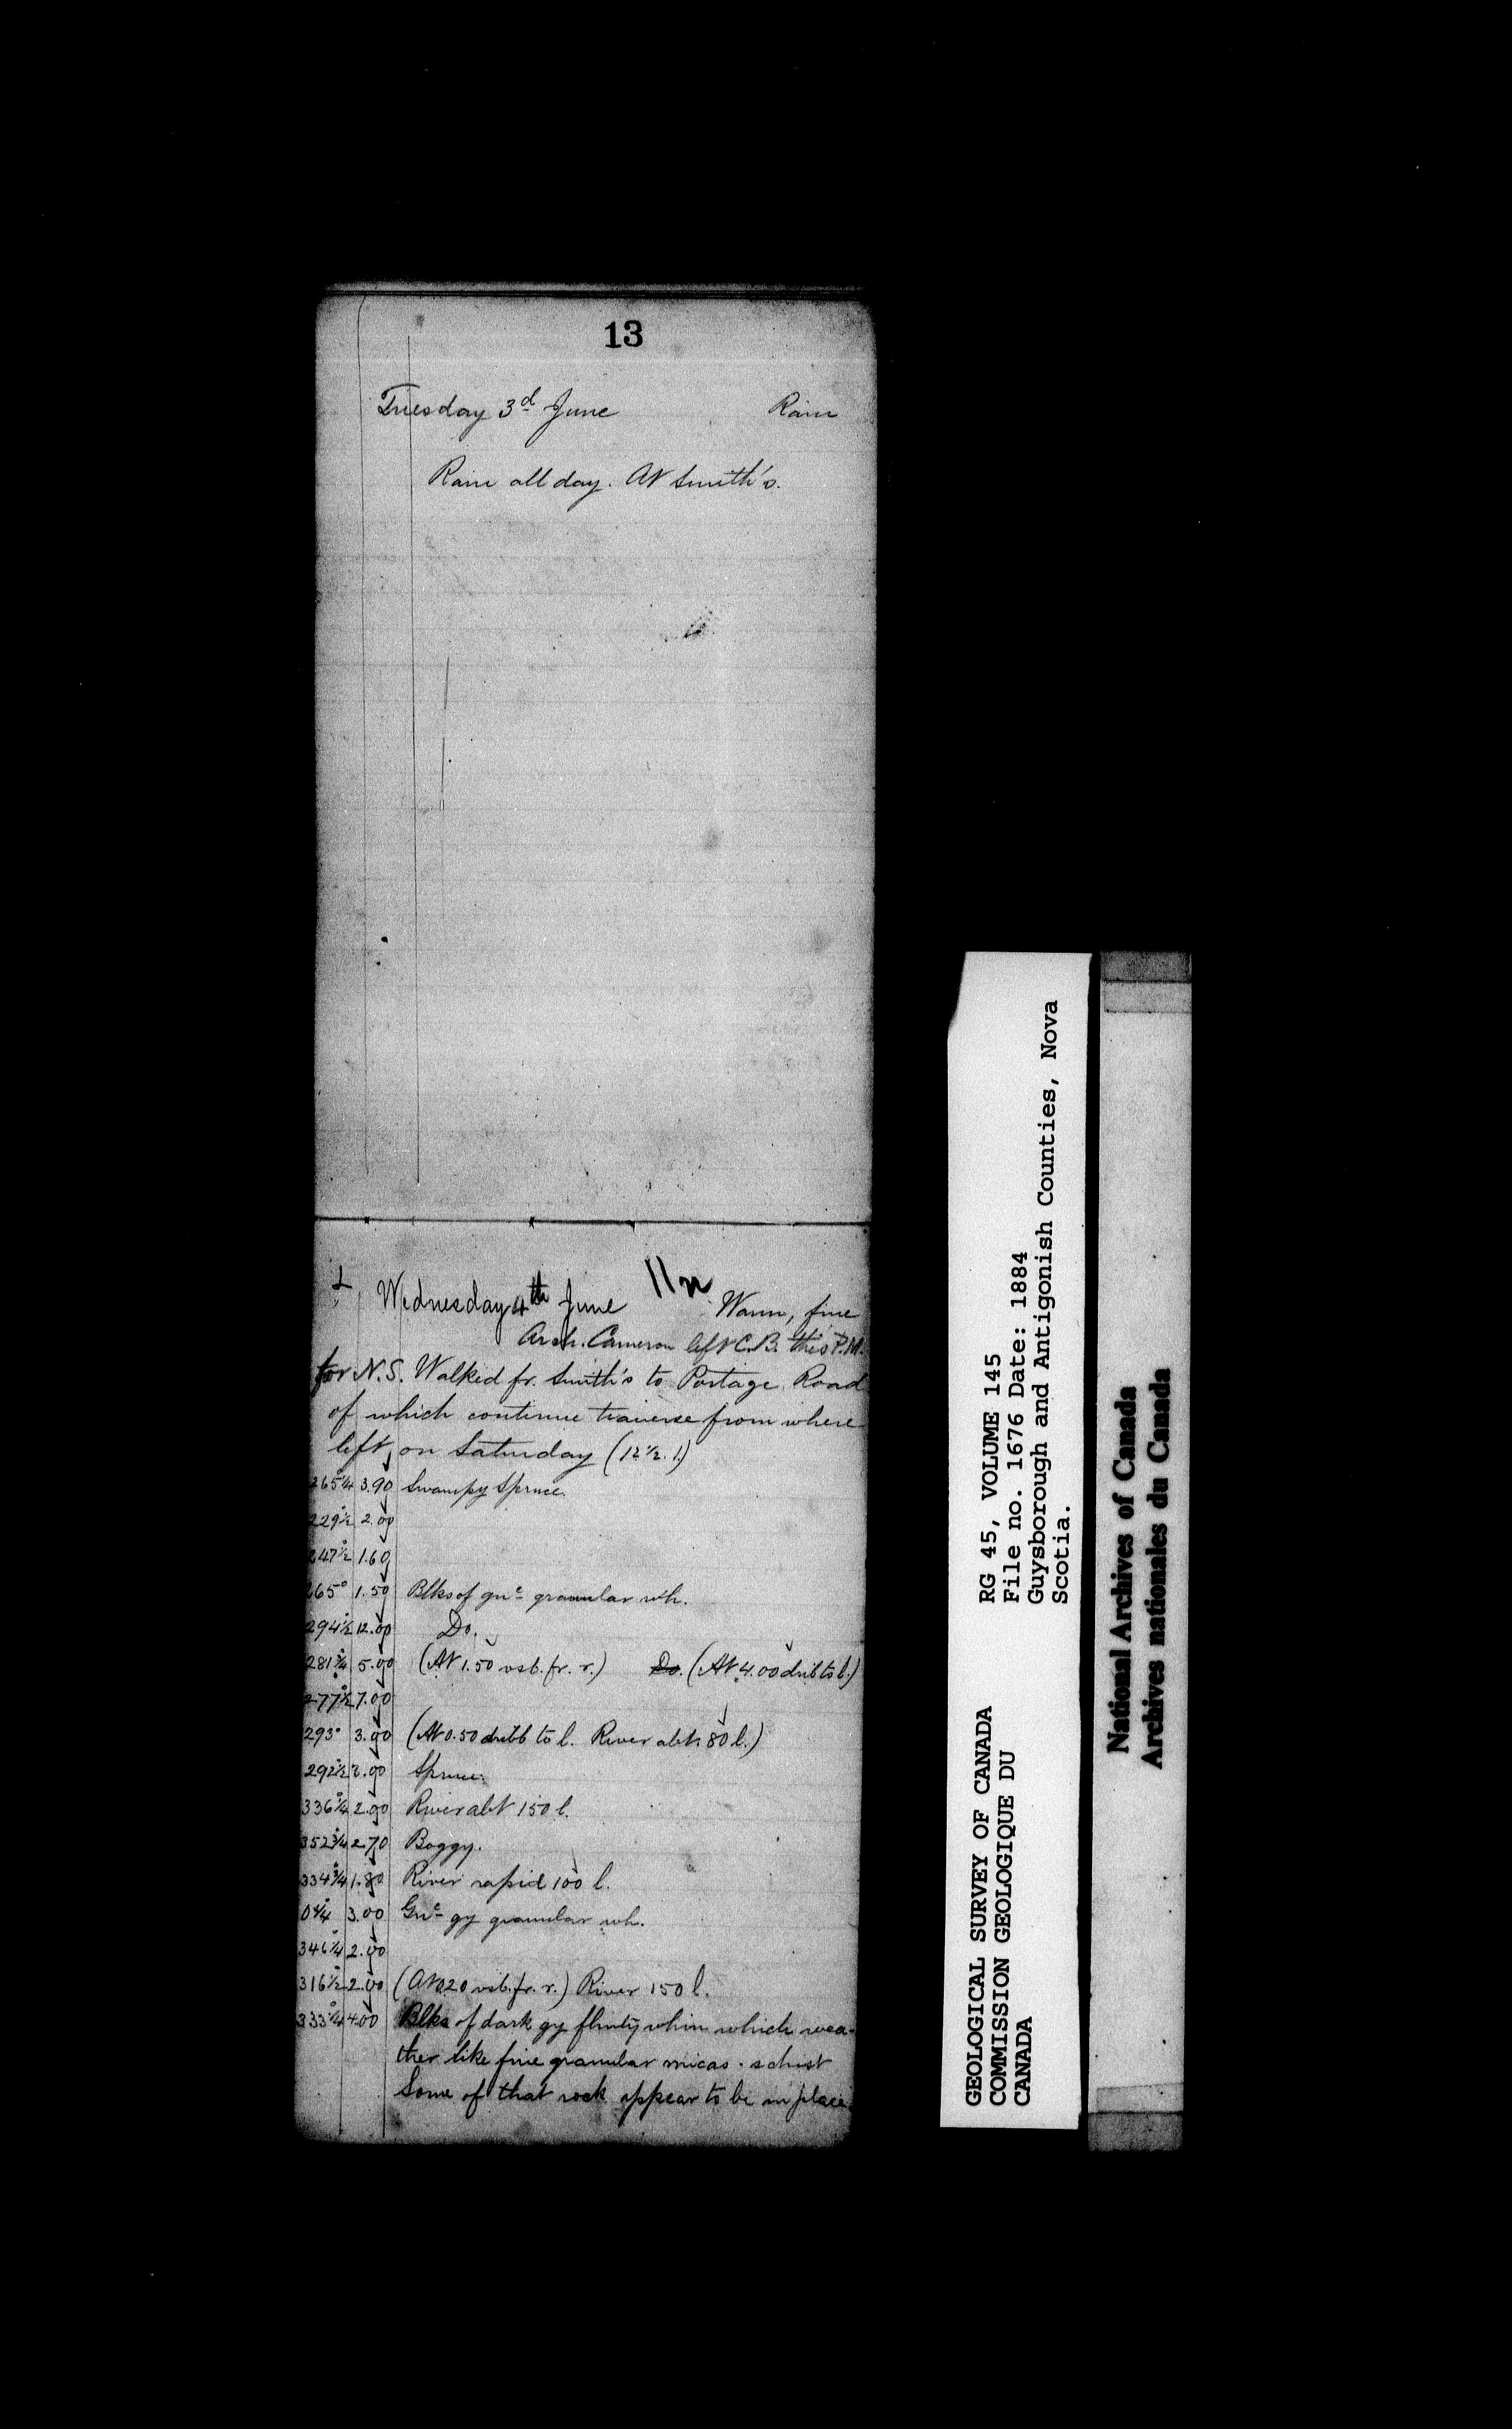 13
Tuesday 3d June Rain
Rain all day. At Smith's.
Wednesday 4th June 11n Warm, fine
Arch. Cameron left C.B. this P.M.
for N.S. Walked fr. Smith's to Portage Road
of which continue traverse from where
left, on Saturday (12 1/2. l.)
265°1/4 3.90 Swampy Spruce.
229°1/2 2.00
247°1/2 1.60
265° 1.50 Blks of gne granular wh.
294°1/2 12.00 Do.
281°3/4 5.00 (At 1.50 vsb. fr. r.) Do. (At 4.00 drib to l.)
277°1/2 7.00
293° 3.00 (At 0.50 dribb to l. River abt. 80 l.)
292°1/2 3.00 Spruce.
336°1/4 2.00 River abt 150 l.
352°3/4 2.70 Boggy.
334°3/4 1.80 River rapid 100 l.
0°1/4 3.00 Gne gy granular wh.
346°1/4 2.00
316°1/2 2.00 (At 0.20 vsb. fr. r.) River 150 l.
333°1/4 4.00 Blks of dark gy flinty whin which wea-
ther like fine granular micas. schist
Some of that rock appear to be in place
GEOLOGICAL SURVEY OF CANADA
COMMISSION GEOLOGIQUE DU
CANADA
RG 45, VOLUME 145
File no. 1676 Date: 1884
Guysborough and Antigonish Counties, Nova
Scotia.
National Archives of Canada
Archives nationales du Canada